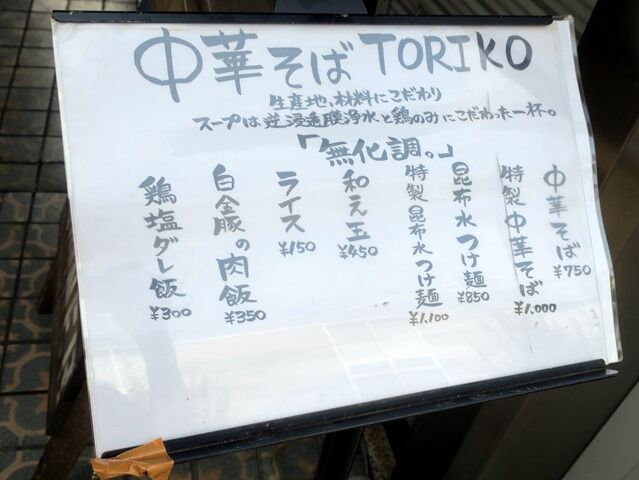 中華そば TORIKO
生産地、材料にこだわり
スープは逆浸透膜浄水と鶏のみにこだわった一杯。
「無化調。」
中華そば
¥750
特製中華そば
¥1,000
昆布水つけ麺
¥850
特製昆布水つけ麺
¥1,100
和え玉
¥450
ライス
¥150
白金豚の肉飯
¥350
鶏塩ダレ飯
¥300